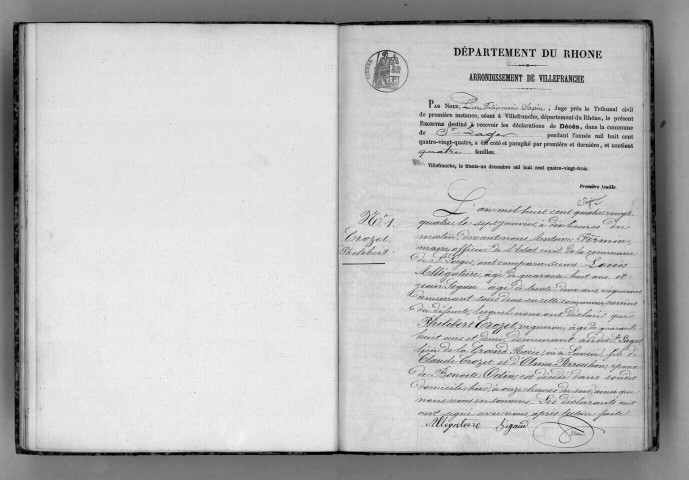 DÉPARTEMENT DU RHONE
ARRONDISSEMENT DE VILLEFRANCHE
PAR NOUS, Sapin, Juge près le Tribunal civil
de première instance, séant à Villefranche, département du Rhône, le présent
REGISTRE destiné à recevoir les déclarations de Décès, dans la commune
de St Lager pendant l'année mil huit cent
quatre-vingt-quatre, a été coté et paraphé par première et dernière, et contient
quatre feuilles.
Villefranche, le trente-un décembre mil huit cent quatre-vingt-trois.
Première feuille.
Sapin
No 1.
Crozet
Philibert
L'an mil huit cent quatre vingt
quatre, le sept janvier, à dix heures du
matin, devant nous Antoine Fermin
maire, officier de l'Etat civil de la commune
de St Lager, ont comparu sieurs Louis
Alligatière, âgé de quarante huit ans et
Jean Sigaud âgé de trente deux ans, vignerons
demeurant tous deux en cette commune, voisins
du défunt, lesquels nous ont déclaré que
Philibert Crozet, vigneron, âgé de quarante
huit ans et demi, demeurant audit St Lager
lieu de la Grand Raie, né à fils de
Claude Crozet et d'Anne Perrachon, époux
de Benoite Odin, est décédé dans son dit
domicile, hier, à onze heures du soir, ainsi que
nous nous en sommes. Les déclarants ont
ont signé avec nous, après lecture faite
Alligatière Sigaud